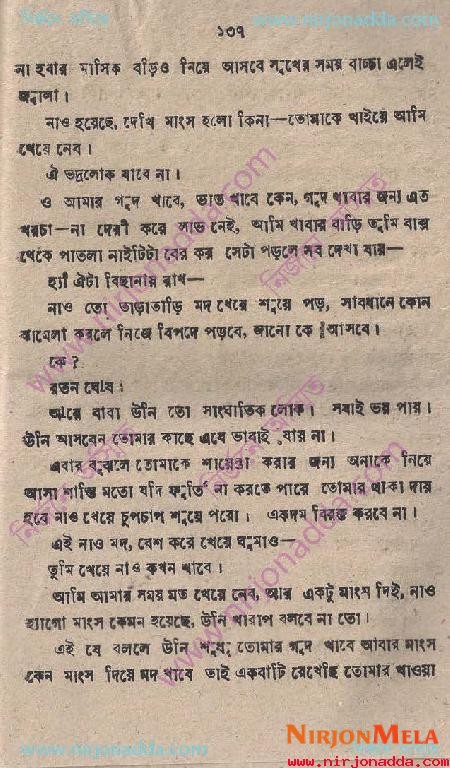 নির্জন অসিত www.nirjonadda.com
১৩৭
না হবার মাসিক বড়িও নিয়ে আসবে সুখের সময় বাচ্চা এলেই
জ্বালা।
নাও হয়েছে, দেখি মাংস হলো কিনা—তোমাকে খাইয়ে আমি
খেয়ে নেব।
ঐ ভদ্রলোক খাবে না।
ও আমার গুদ খাবে, ভাত খাবে কেন, গুদ খাবার জন্য এত
খরচা—না দেরী করে লাভ নেই, আমি খাবার বাড়ি তুমি বাক্স
থেকে পাতলা নাইটিটা বের কর সেটা পড়লে সব দেখা যায়—
হ্যাঁ ঐটা বিছানায় রাখ—
নাও তো তাড়াতাড়ি মদ খেয়ে শুয়ে পড়, সাবধানে কোন
ঝামেলা করলে নিজে বিপদে পড়বে, জানো কে আসবে।
কে?
রতন ঘোষ।
আরে বাবা উনি তো সাংঘাতিক লোক। সবাই ভয় পায়।
উনি আসবেন তোমার কাছে এযে ভাবাই যায় না।
এবার বুঝলে তোমাকে শায়েস্তা করার জন্য অন্যকে নিয়ে
আসা শাস্তি মতো যদি ফূর্তি না করতে পারে তোমার থাকা দায়
হবে নাও খেয়ে চুপচাপ শুয়ে পরো। একদম বিরক্ত করবে না।
এই নাও মদ, বেশ করে খেয়ে ঘুমাও—
তুমি খেয়ে নাও কখন খাবে।
আমি আমার সময় মত খেয়ে নেব, আর একটু মাংস দিই, নাও
হ্যাগো মাংস কেমন হয়েছে, উনি খারাপ বলবে না তো।
এই যে বললে উনি শুধু তোমার গুদ খাবে আবার মাংস
কেন মাংস দিয়ে মদ খাবে তাই একবাটি রেখেছি তোমার খাওয়া
NIRJONMELA
www.nirjonadda.com
www.nirjonadda.com